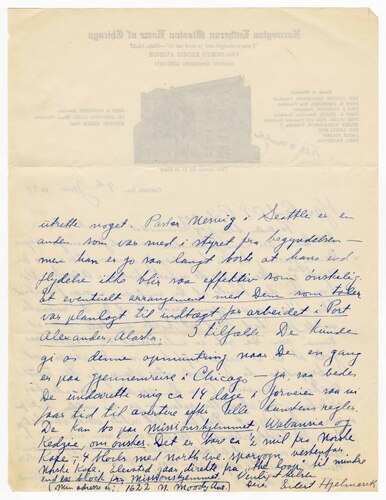 Norwegian Lutheran Mission Home of Chicago
utrette noget. Pastor Nervig i Seattle er en
anden som var med i styret fra begyndelsen –
men han er jo saa langt borte at hans ind-
flydelse ikke blir saa effektiv som ønskelig.
At eventuelt arrangement med Dem som taler
var planlagt til indtægt for arbeidet i Port
Alexander, Alaska. I tilfælde De kunde
gi os denne opmuntring naar De en gang
er paa gjennemreise i Chicago – ja saa bedes
De underrette mig ca 14 dage i forveien saa vi
faar tid til avertere efter alle kunstens regler.
De kan bo paa Missionshjemmet, Wabansia og
Kedzie, om ønskes. Det er bare ca ½ mil fra Norske
Kafe, – 4 blocks med North Ave. sporvogn vestenfor
Norske Kafe. Elevated
en block fra Missionshjemmet.
Venligst Deres
(Min adresse er: 1622 N. Moody Ave.)
Eilert Hjelmervik